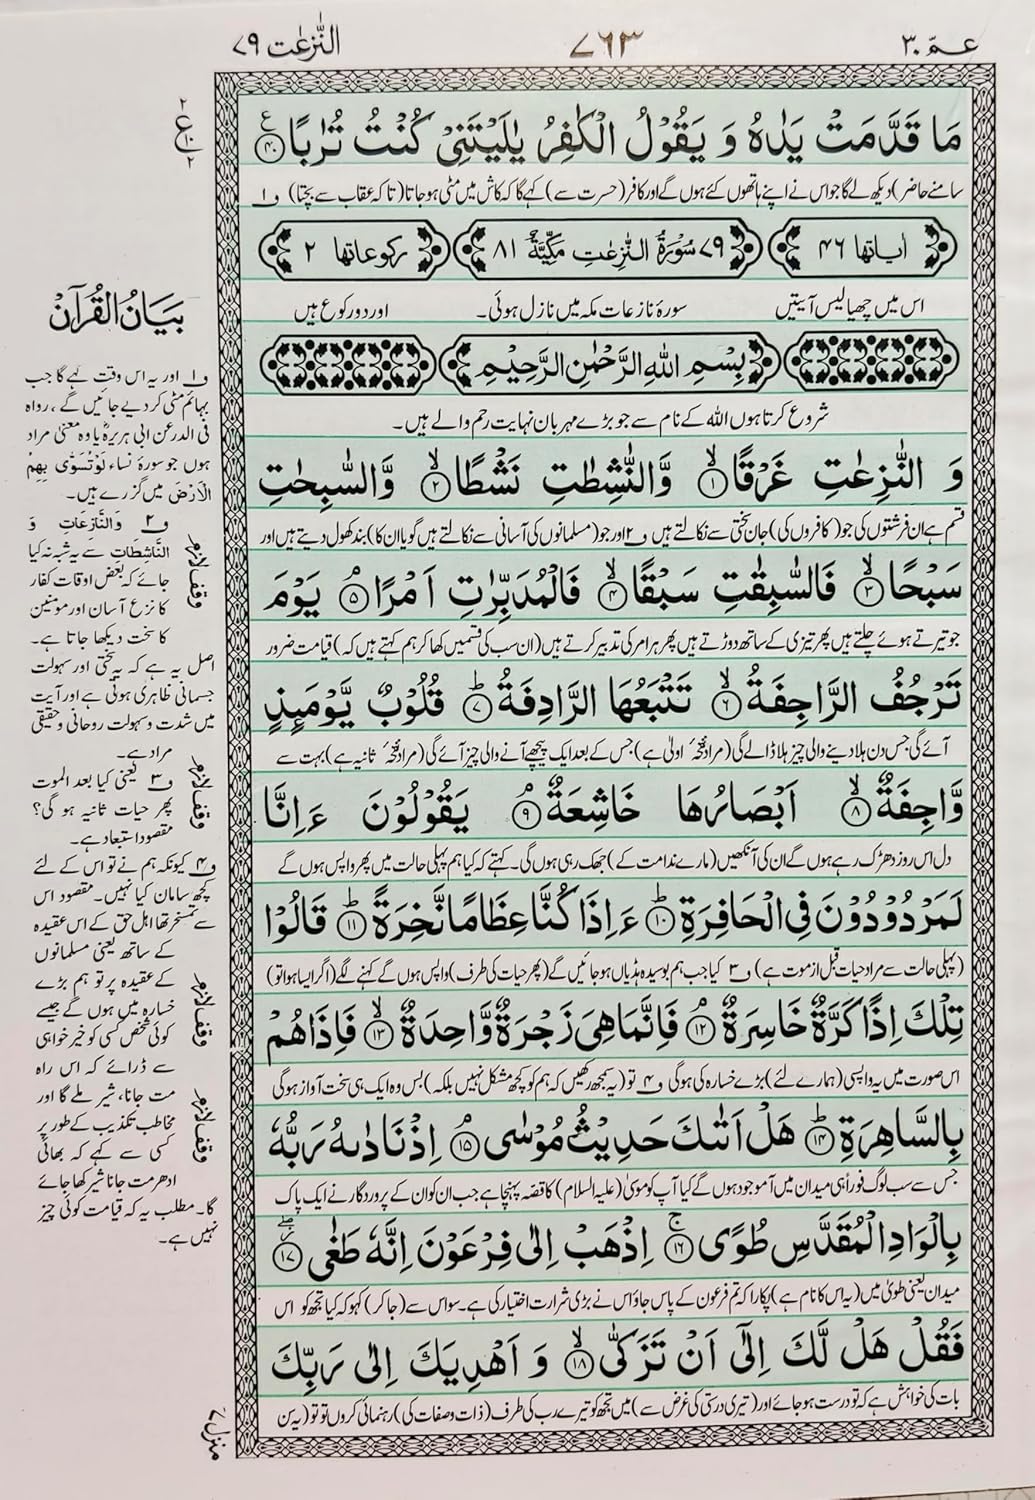 عـمّ ٣٠
٧٦٣
النّٰزعٰت ٧٩
مَا قَدَّمَتْ يَدٰهُ وَ يَقُوْلُ الْكٰفِرُ يٰلَيْتَنِيْ كُنْتُ تُرٰبًا ٤٠
سامنے حاضر) دیکھ لے گا جو اس نے اپنے ہاتھوں کئے ہوں گے اور کافر (حسرت سے) کہے گا کہ کاش میں مٹی ہو جاتا (تاکہ عقاب سے بچتا) ف۱
اٰیاتها ٤٦
٧٩ سُوْرَةُ النّٰزِعٰتِ مَكِّيَّةٌ ٨١
ركوعاتها ٢
اس میں چھیالیس آیتیں
سورۂ نازعات مکہ میں نازل ہوئی۔
اور دو رکوع ہیں
بِسْمِ اللهِ الرَّحْمٰنِ الرَّحِيْمِ
شروع کرتا ہوں اللہ کے نام سے جو بڑے مہربان نہایت رحم والے ہیں۔
وَ النّٰزِعٰتِ غَرْقًا ۙ ١ وَّالنّٰشِطٰتِ نَشْطًا ۙ ٢ وَّالسّٰبِحٰتِ
قسم ہے ان فرشتوں کی جو (کافروں کی) جان سختی سے نکالتے ہیں ف۲ اور جو (مسلمانوں کی آسانی سے نکالتے ہیں گویا ان کا) بند کھول دیتے ہیں اور
سَبْحًا ۙ ٣ فَالسّٰبِقٰتِ سَبْقًا ۙ ٤ فَالْمُدَبِّرٰتِ اَمْرًا ۘ ٥ يَوْمَ
جو تیرتے ہوئے چلتے ہیں پھر تیزی کے ساتھ دوڑتے ہیں پھر ہر امر کی تدبیر کرتے ہیں (ان سب کی قسمیں کھا کر ہم کہتے ہیں کہ) قیامت ضرور
تَرْجُفُ الرَّاجِفَةُ ۙ ٦ تَتْبَعُهَا الرَّادِفَةُ ؕ ٧ قُلُوْبٌ يَّوْمَىِٕذٍ
آئے گی جس دن ہلا دینے والی چیز ہلا ڈالے گی (مراد نفخۂ اولیٰ ہے) جس کے بعد ایک پیچھے آنے والی چیز آئے گی (مراد نفخۂ ثانیہ ہے) بہت سے
وَّاجِفَةٌ ۙ ٨ اَبْصَارُهَا خَاشِعَةٌ ۘ ٩ يَقُوْلُوْنَ ءَاِنَّا
دل اس روز دھڑک رہے ہوں گے ان کی آنکھیں (مارے ندامت کے) جھک رہی ہوں گی۔ کہتے کہ کیا ہم پہلی حالت میں پھر واپس ہوں گے
لَمَرْدُوْدُوْنَ فِي الْحَافِرَةِ ؕ ١٠ ءَاِذَا كُنَّا عِظَامًا نَّخِرَةً ؕ ١١ قَالُوْا
(پہلی حالت سے مراد حیات قبل از موت ہے) ف۳ کیا جب ہم بوسیدہ ہڈیاں ہو جائیں گے (پھر حیات کی طرف) واپس ہوں گے کہنے لگے (اگر ایسا ہوا تو)
تِلْكَ اِذًا كَرَّةٌ خَاسِرَةٌ ۘ ١٢ فَاِنَّمَا هِيَ زَجْرَةٌ وَّاحِدَةٌ ۙ ١٣ فَاِذَا هُمْ
اس صورت میں یہ واپسی (ہمارے لئے) بڑے خسارہ کی ہوگی ف۴ تو (یہ سمجھ رکھیں کہ ہم کو کچھ مشکل نہیں بلکہ) بس وہ ایک ہی سخت آواز ہوگی
بِالسَّاهِرَةِ ؕ ١٤ هَلْ اَتٰىكَ حَدِيْثُ مُوْسٰى ۘ ١٥ اِذْ نَادٰىهُ رَبُّهٗ
جس سے سب لوگ فوراً ہی میدان میں آموجود ہوں گے کیا آپ کو موسیٰ (علیہ السلام) کا قصہ پہنچا ہے جب ان کو ان کے پروردگار نے ایک پاک
بِالْوَادِ الْمُقَدَّسِ طُوًى ۚ ١٦ اِذْهَبْ اِلٰى فِرْعَوْنَ اِنَّهٗ طَغٰى ۖ ١٧
میدان یعنی طویٰ میں (یہ اس کا نام ہے) پکارا کہ تم فرعون کے پاس جاؤ اس نے بڑی شرارت اختیار کی ہے۔ سو اس سے (جا کر) کہو کہ کیا تجھ کو اس
فَقُلْ هَلْ لَّكَ اِلٰٓى اَنْ تَزَكّٰى ۙ ١٨ وَ اَهْدِيَكَ اِلٰى رَبِّكَ
بات کی خواہش ہے کہ تو درست ہو جائے اور (تیری درستی کی غرض سے) میں تجھ کو تیرے رب کی طرف (ذات وصفات کی) رہنمائی کروں تو تو (یہ سن
٢
ع
١٠
٢
بَیَانُ الْقُرآنْ
ف۱ اور یہ اس وقت کہے گا جب
بہائم مٹی کر دیے جائیں گے، رواہ
فی الدر عن ابی ھریرۃؓ یا وہ معنیٰ مراد
ہوں جو سورۂ نساء لَوْ تُسَوّٰى بِهِمُ
الْاَرْضُ میں گزرے ہیں۔
ف۲ وَالنَّازِعَاتِ وَ
النَّاشِطَاتِ سے یہ شبہ نہ کیا
جائے کہ بعض اوقات کفار
کا نزع آسان اور مومنین
کا سخت دیکھا جاتا ہے۔
اصل یہ ہے کہ یہ سختی اور سہولت
جسمانی ظاہری ہوتی ہے اور آیت
میں شدت و سہولت روحانی وحقیقی
مراد ہے۔
ف۳ یعنی کیا بعد الموت
پھر حیات ثانیہ ہو گی؟
مقصود استبعاد ہے۔
ف۴ کیونکہ ہم نے تو اس کے لئے
کچھ سامان کیا نہیں۔ مقصود اس
سے تمسخر تھا اہل حق کے اس عقیدہ
کے ساتھ یعنی مسلمانوں
کے عقیدہ پر تو ہم بڑے
خسارہ میں ہوں گے جیسے
کوئی شخص کسی کو خیر خواہی
سے ڈرائے کہ اس راہ
مت جانا، شیر ملے گا اور
مخاطب تکذیب کے طور پر
کسی سے کہے کہ بھائی
ادھر مت جانا شیر کھا جائے
گا۔ مطلب یہ کہ قیامت کوئی چیز
نہیں ہے۔
وقف لازم
وقف لازم
وقف لازم
وقف لازم
منزل ٧